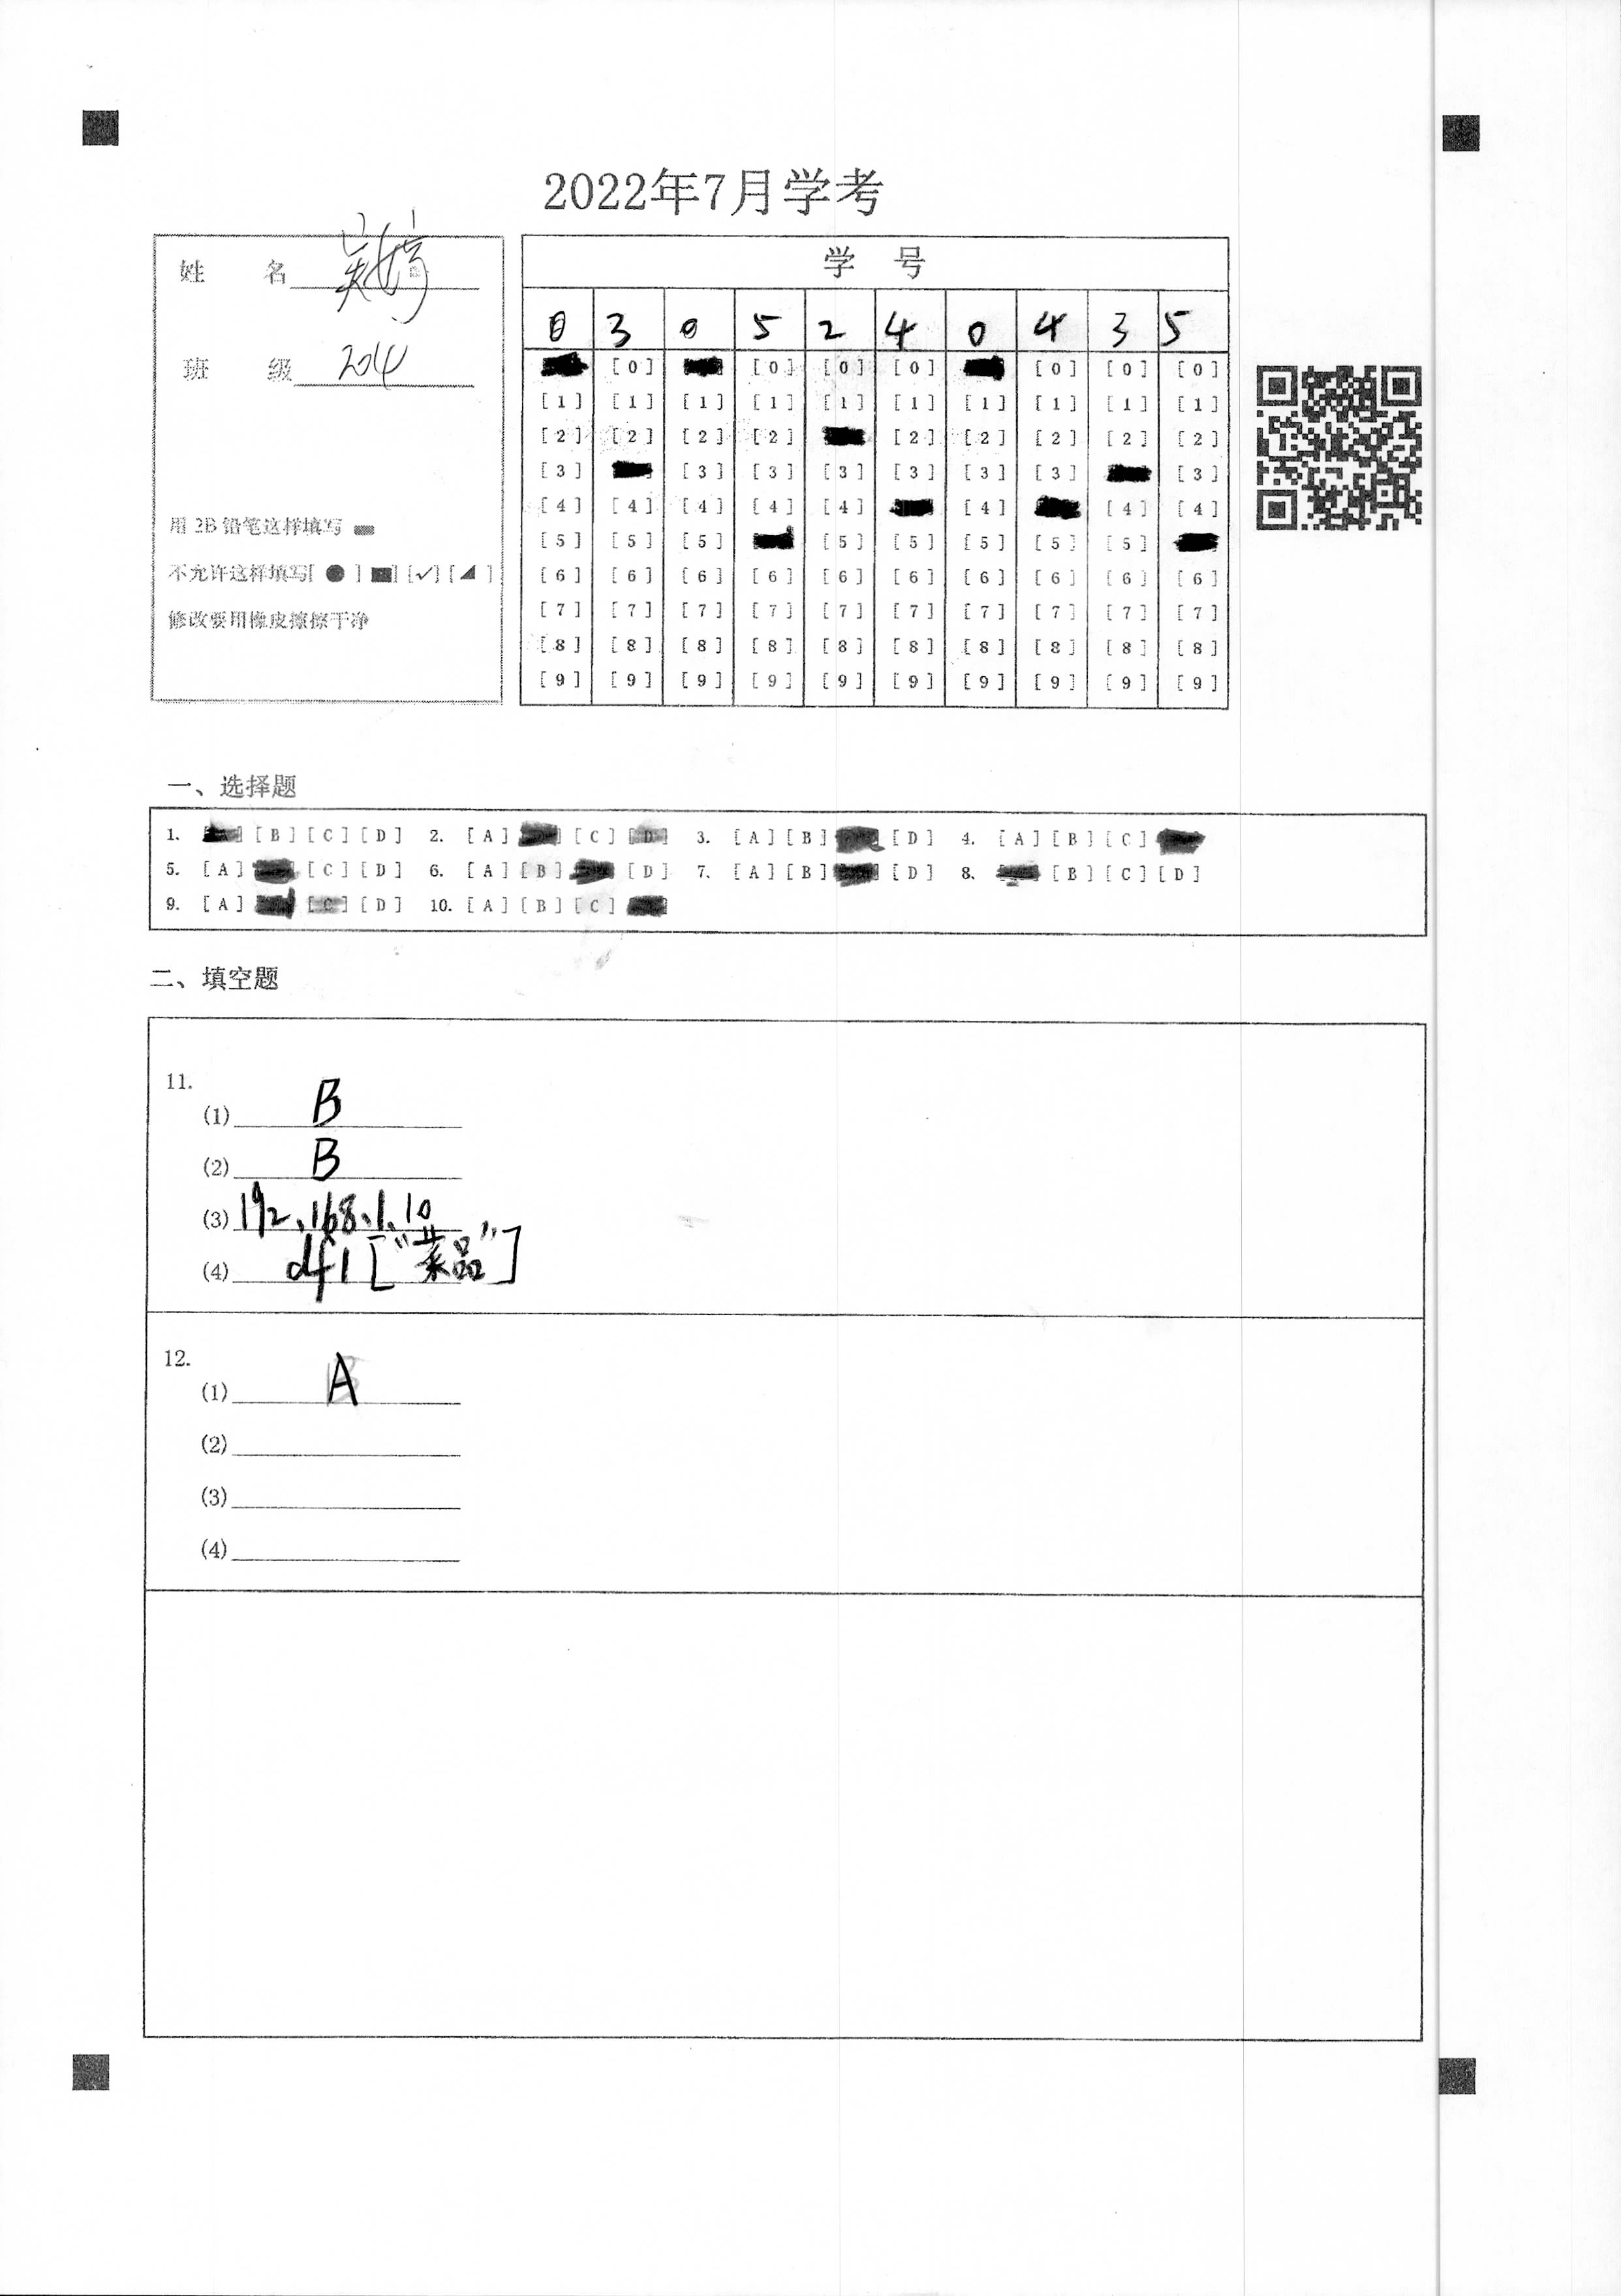 2022年7月学考
姓 名 吴婷
班 级 2014
用 2B 铅笔这样填写
不允许这样填写[ ● ] [■] [✓] [◢ ]
修改要用橡皮擦擦干净
学 号
0 3 0 5 2 4 0 4 3 5
[0] [0] [0] [0] [0] [0] [0]
[1] [1] [1] [1] [1] [1] [1] [1] [1] [1]
[2] [2] [2] [2] [2] [2] [2] [2] [2]
[3] [3] [3] [3] [3] [3] [3] [3]
[4] [4] [4] [4] [4] [4] [4] [4]
[5] [5] [5] [5] [5] [5] [5] [5]
[6] [6] [6] [6] [6] [6] [6] [6] [6] [6]
[7] [7] [7] [7] [7] [7] [7] [7] [7] [7]
[8] [8] [8] [8] [8] [8] [8] [8] [8] [8]
[9] [9] [9] [9] [9] [9] [9] [9] [9] [9]
一、选择题
1. [B] [C] [D] 2. [A] [C] [D] 3. [A] [B] [D] 4. [A] [B] [C]
5. [A] [C] [D] 6. [A] [B] [D] 7. [A] [B] [D] 8. [B] [C] [D]
9. [A] [C] [D] 10. [A] [B] [C]
二、填空题
11.
(1) B
(2) B
(3) 192.168.1.10
(4) df1["菜品"]
12.
(1) A
(2)
(3)
(4)